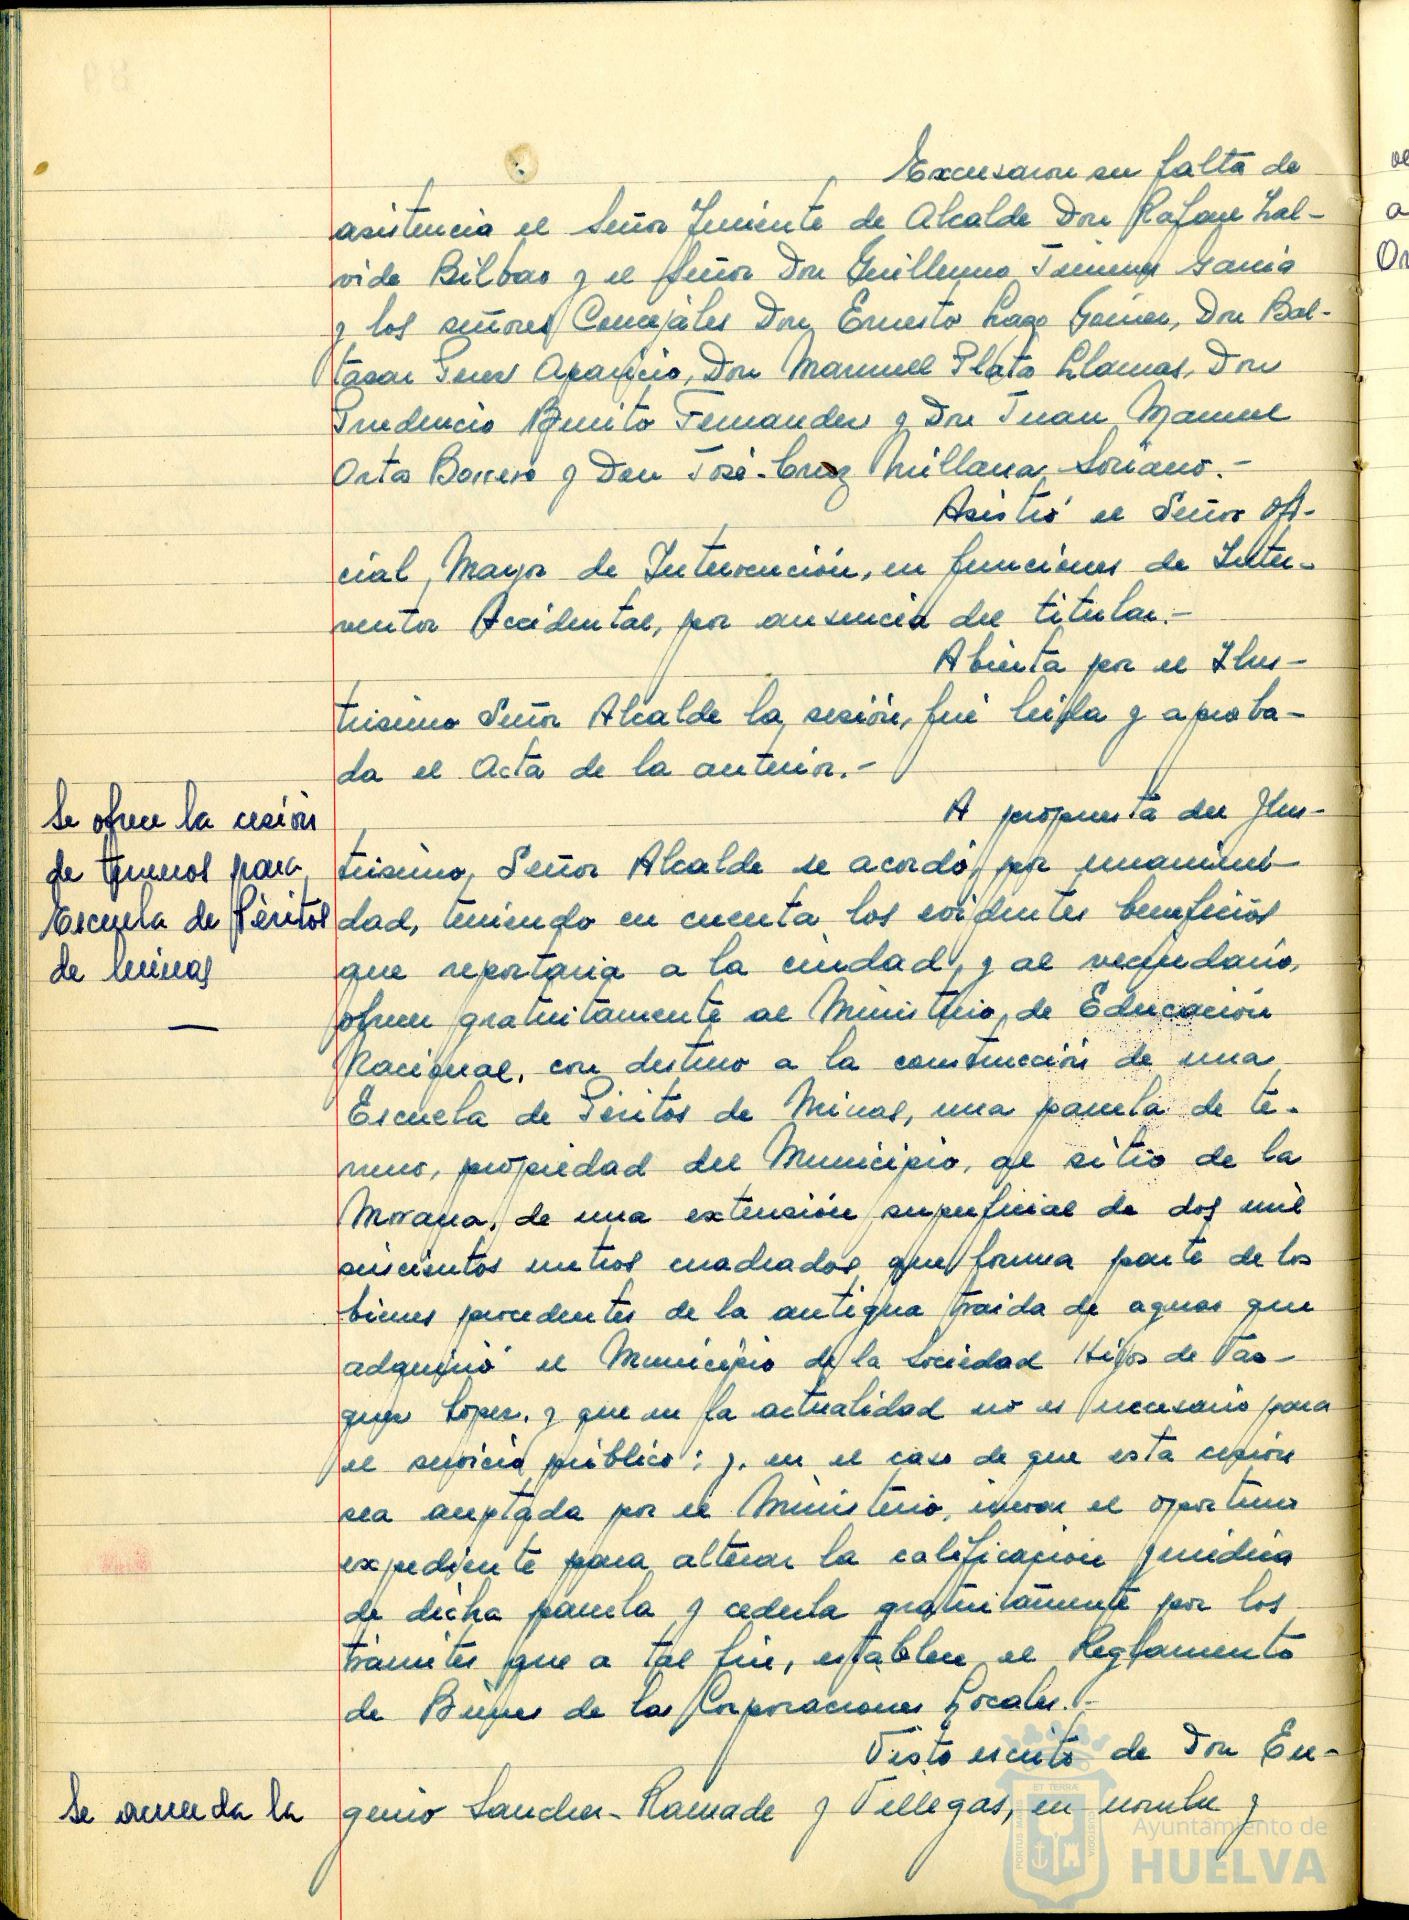 Excusaron su falta de
asistencia el Señor Teniente de Alcalde Don Rafael Zal-
vide Bilbao y el Señor Don Guillermo Jimenez Garcia
y los señores Concejales Don Ernesto Lazo Gómez, Don Bal-
tasar Perez Aparicio, Don Manuel Plata Llamas, Don
Prudencio Benito Fernandez y Don Juan Manuel
Orta Borrero y Don José-Cruz Millana Soriano.-
Asistió el Señor Ofi-
cial Mayor de Intervención, en funciones de Inter-
ventor Accidental, por ausencia del titular.-
Abierta por el Ilus-
trisimo Señor Alcalde la sesión, fué leida y aproba-
da el Acta de la anterior.-
Se ofrece la cesión
de terrenos para
Escuela de Péritos
de Minas
A propuesta del Ilus-
trisimo Señor Alcalde se acordó, por unanimi-
dad, teniendo en cuenta los evidentes beneficios
que reportaria a la ciudad, y al vecindario,
ofrecer gratuitamente al Ministerio de Educación
Nacional, con destino a la construcción de una
Escuela de Péritos de Minas, una parcela de te-
rreno, propiedad del Municipio, al sitio de la
Morana, de una extensión superficial de dos mil
seiscientos metros cuadrados que forma parte de los
bienes procedentes de la antigua traida de aguas que
adquirió el Municipio de la Sociedad Hijos de Vaz-
quez Lopez, y que en la actualidad no es necesario para
el servicio público; y, en el caso de que esta cesión
sea aceptada por el Ministerio, incoar el oportuno
expediente para alterar la calificación juridica
de dicha parcela y cederla gratuitamente por los
trámites que a tal fin, establece el Reglamento
de Bienes de las Corporaciones Locales.-
Visto escrito de Don Eu-
Se acuerda la
genio Sanchez-Ramade y Villegas, en nombre y
ET TERRÆ
PORTUS MARIS
CUSTODIA
Ayuntamiento de
HUELVA